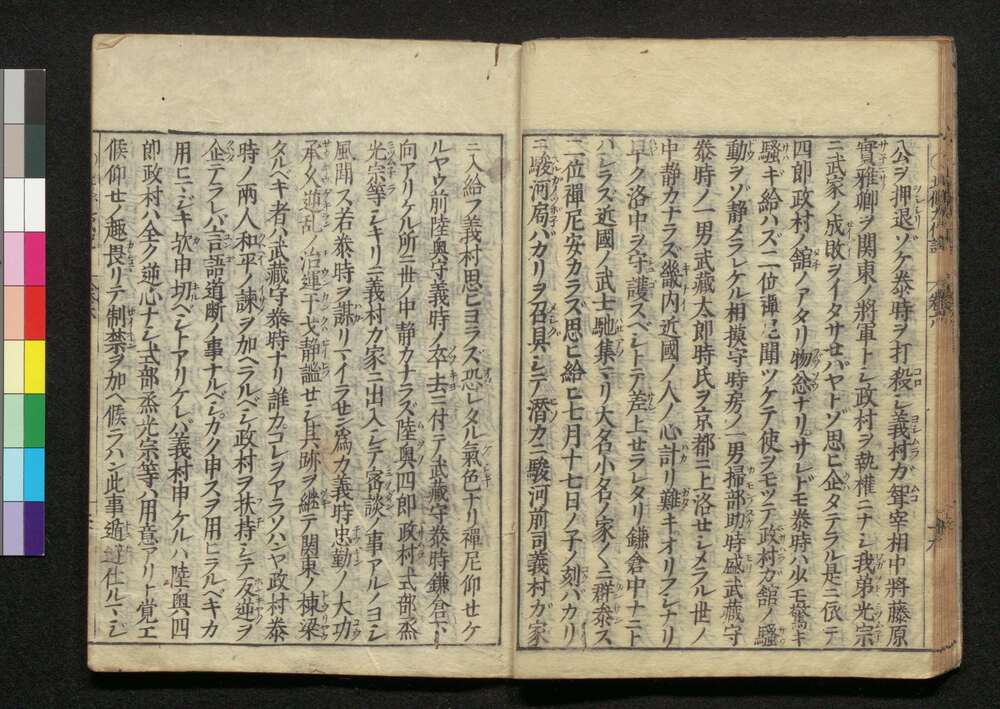 公ヲ押退ゾケ泰時ヲ打殺シ義村ガ聟宰相中將藤原
實雅卿ヲ関東ノ將軍トシ政村ヲ執權ニナシ我弟光宗
ニ武家ノ成敗ヲイタサセバヤトゾ思ヒ企タテラル是ニ依テ
四郎政村ノ舘ノアタリ物忩ナリサレドモ泰時ハ少モ驚キ
騒ギ給ハズ二位禪尼聞ツケテ使ヲモツテ政村カ舘ノ騒
動ヲゾ静メラレケル相摸守時房ノ一男掃部助時盛武藏守
泰時ノ一男武藏太郎時氏ヲ京都ニ上洛セシメラル世ノ
中静カナラズ畿内近國ノ人ノ心計リ難キオリフシナリ
早ク洛中ヲ守護スベシトテ差上セラレタリ鎌倉中ナニト
ハシラズ近國ノ武士馳集マリ大名小名ノ家〱ニ群参ス
二位禪尼安カラズ思ヒ給ヒ七月十七日ノ子刻バカリ
ニ駿河局バカリヲ召具シテ潜カニ駿河前司義村ガ家
ニ入給フ義村思ヒヨラズ恐レタル氣色ナリ禪尼仰セケ
ルヤウ前陸奥守義時ノ卒去ニ付テ武藏守泰時鎌倉ニ下
向アリケル所ニ世ノ中静カナラズ陸奥四郎政村式部丞
光宗等シキリニ義村カ家ニ出入シテ密談ノ事アルノヨシ
風聞ス若泰時ヲ謀リマイラセン為カ義時忠勤ノ大功
承久逆乱ノ治運干戈静謐セシ其跡ヲ継テ関東ノ棟梁
タルベキ者ハ武藏守泰時ナリ誰カコレヲアラソハンヤ政村泰
時ノ両人和平ノ諫ヲ加ヘラルベシ政村ヲ扶持シテ反逆ヲ
企テラレバ言語道断ノ事ナルベシワガ申スヲ用ヒラルベキカ
用ヒマジキ歟申切ベシトアリケレバ義村申ケルハ陸奥四
郎政村ハ全ク逆心ナシ式部丞光宗等ハ用意アリト覚エ
候仰セノ趣畏リテ制禁ヲ加ヘ候ラハン此事遁避仕ルマジ